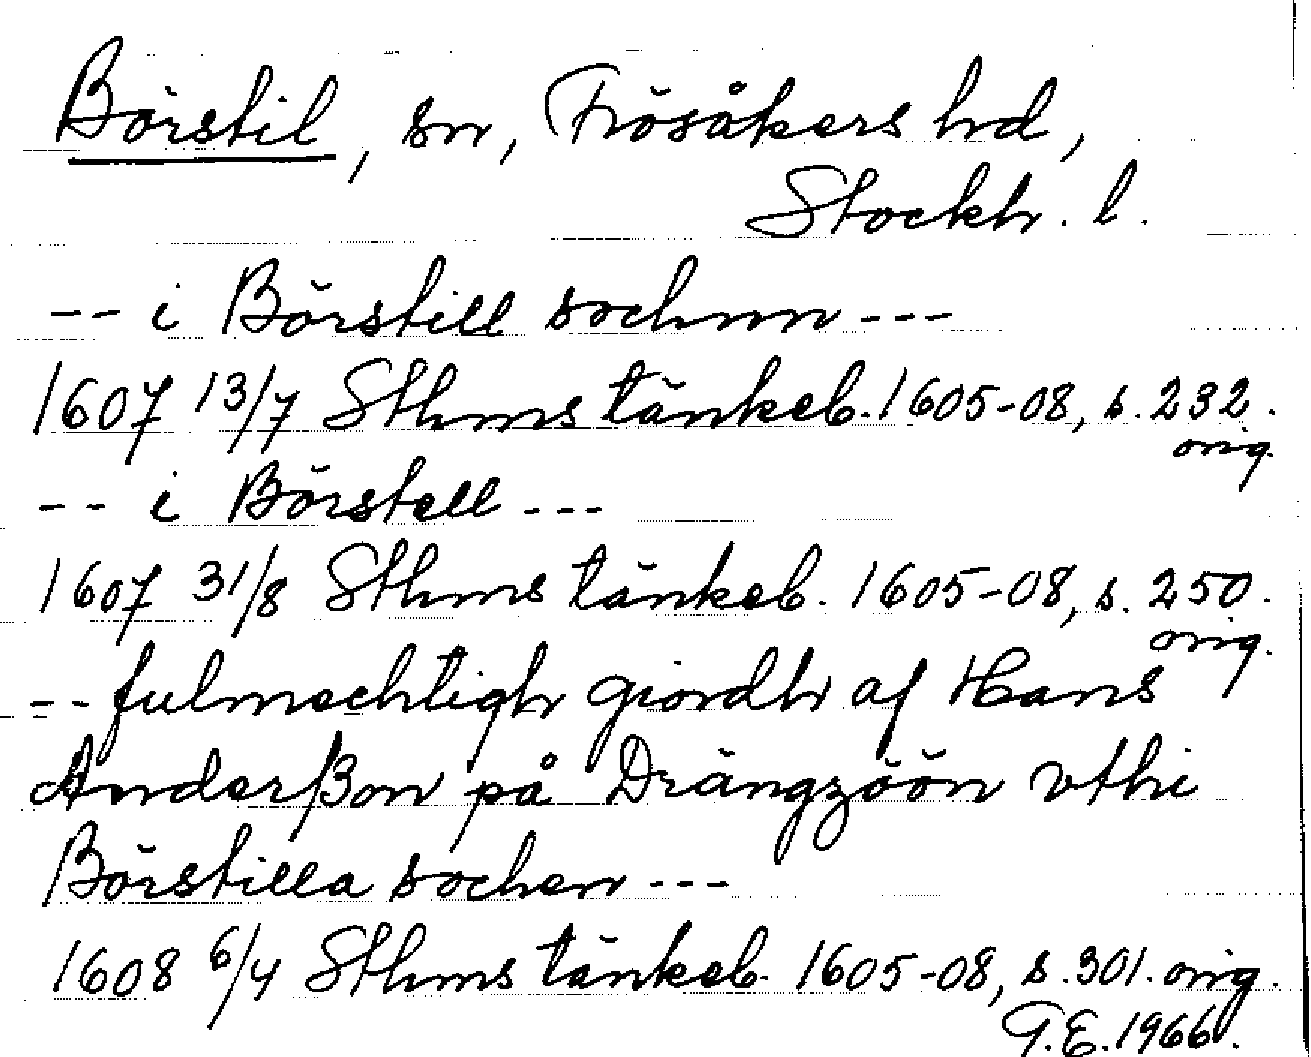 Börstil, sn, Frösåkers hd,
Stockh. l.
-- i Börstill sochnn ---
1607 13/7 Sthms tänkeb. 1605-08, s. 232.
orig.
-- i Börstell ---
1607 31/8 Sthms tänkeb. 1605-08, s. 250.
orig.
-- fulmechtigh giordh af Hans
Anderßon på Drängzöön vthi
Börstilla sochen ---
1608 6/4 Sthms tänkeb. 1605-08, s. 301. orig.
T.E. 1966.